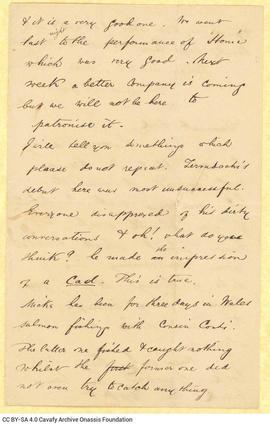 & it is a very good one. We went
last night to the performance of "Home"
which was very good. Next
week a better Company is coming
but we will not be here to
patronise it.
I will tell you something which
please do not repeat.
debut here was most unsuccessful.
Everyone disapproved of his dirty
conversations & oh! what do you
think? he made the impression
of a Cad. This is true.
Mike has been for three days in Wales
salmon fishing with Cousin
The latter one fished & caught nothing
whilst the first former one did
not even try to catch anything
CC BY-SA 4.0 Cavafy Archive Onassis Foundation